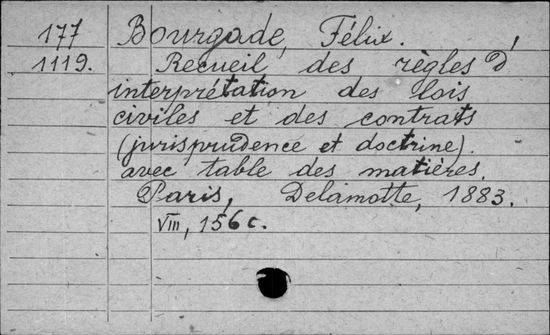 177 Bourgade, Félix.
1119. Recueil des règles d'
interprétation des lois
civiles et des contrats
(jurisprudence et doctrine).
avec table des matières.
Paris, Delamotte, 1883.
VIII, 156 c.